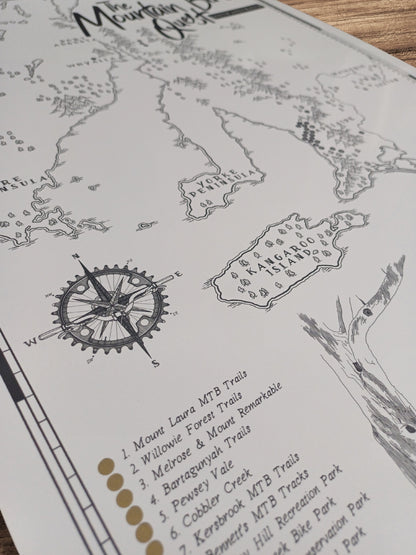 The
Mountain
Quest
YORKE
PENINSULA
YORKE
PENINSULA
KANGAROO
ISLAND
N
E
W
S
1. Mount Laura MTB Trails
2. Willowie Forest Trails
3. Melrose & Mount Remarkable
4. Bartagunyah Trails
5. Pewsey Vale
6. Cobbler Creek
7. Kersbrook MTB Trails
Bennett's MTB Tracks
Hill Recreation Park
Bike Park
Park